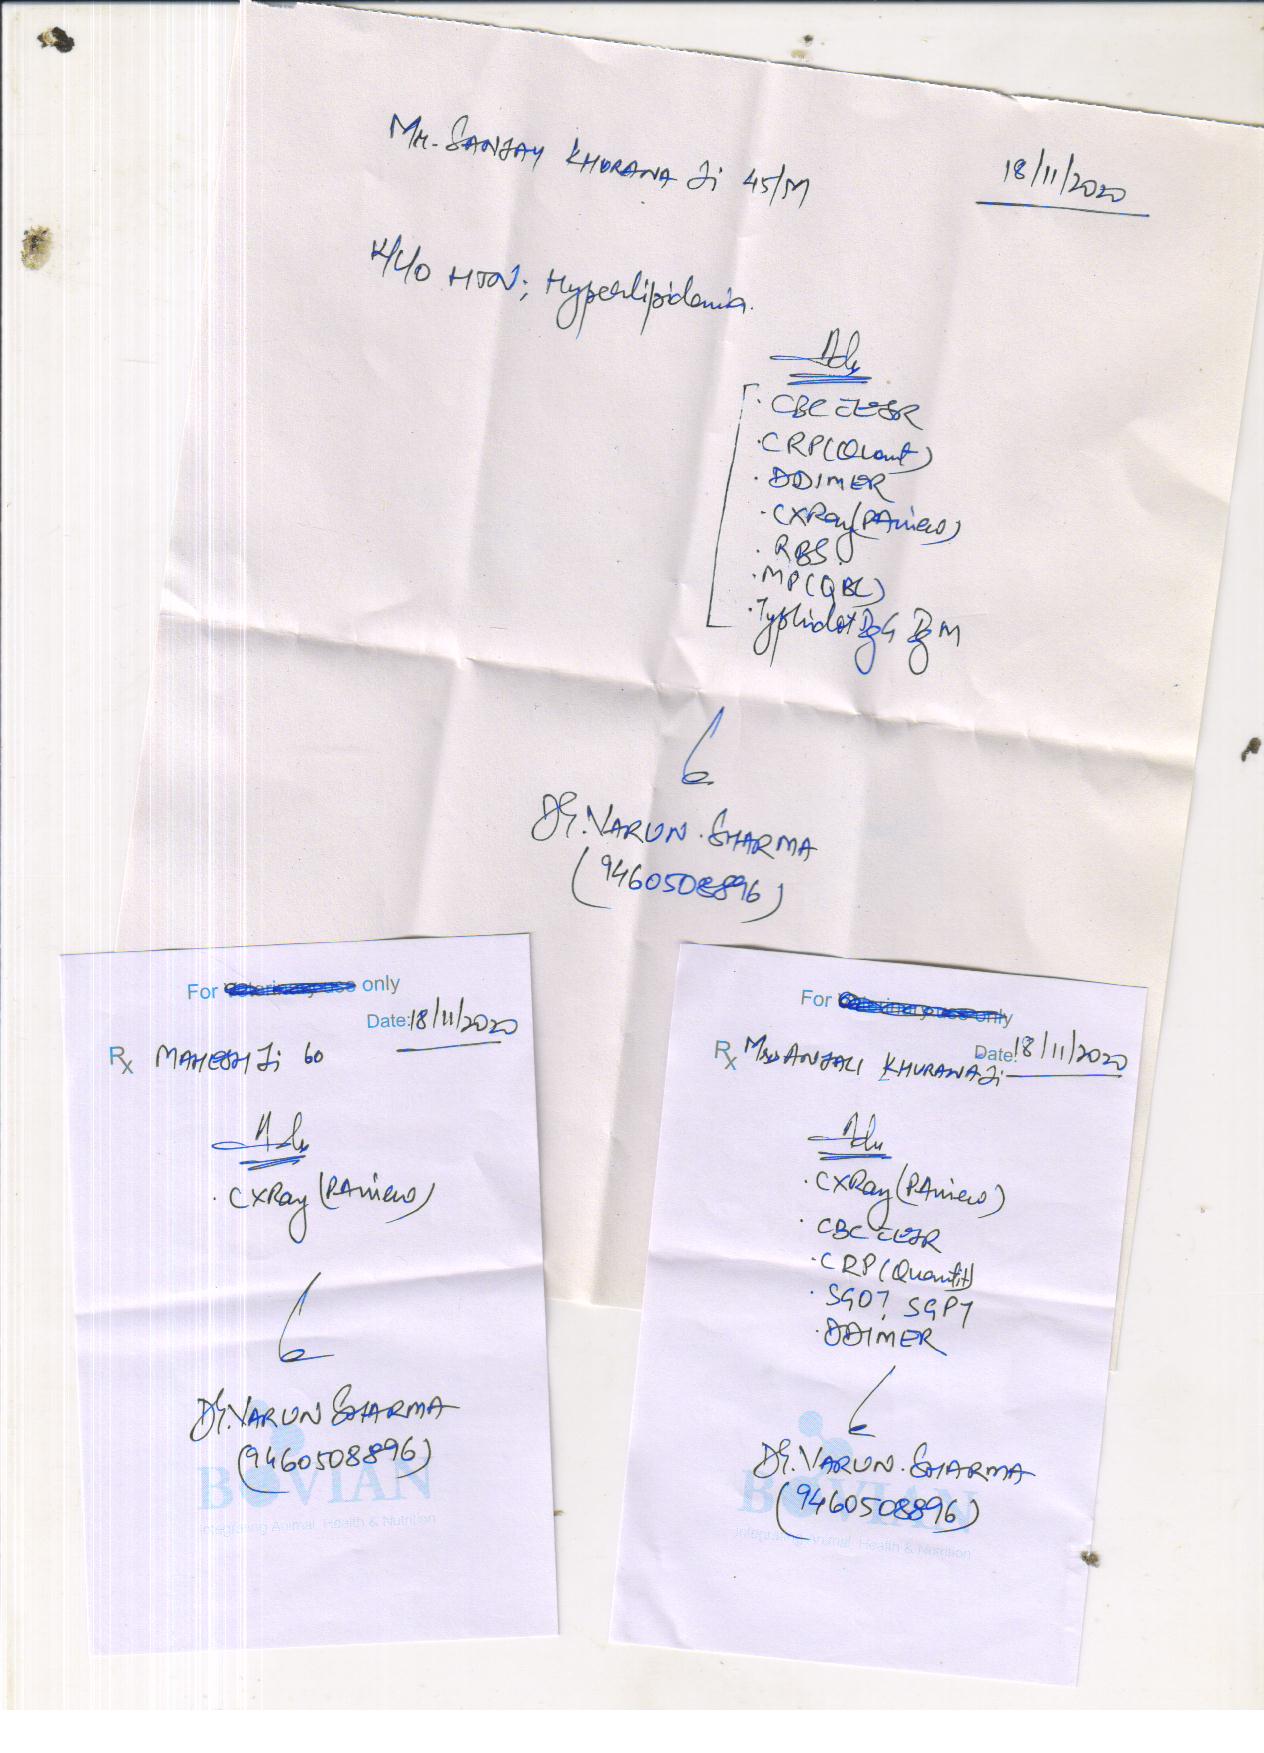 Mr. SANJAY KHURANA Ji 45/M
18/11/2020
K/C/O HTN; Hyperlipidemia.
Adv
· CBC c ESR
· CRP (Quant)
· DDIMER
· CXRay (PA view)
· RBS
· MP (QBC)
· Typhidot IgG IgM
Dr. VARUN. SHARMA
(9460508896)
For Veterinary use only
Date: 18/11/2020
Rx MAHESH Ji 60
Adv
· CXRay (PA view)
Dr. VARUN SHARMA
(9460508896)
BOVIAN
Integrating Animal Health & Nutrition
For Veterinary use only
Date: 18/11/2020
Rx Mrs ANJALI KHURANA Ji
Adv
· CXRay (PA view)
· CBC c ESR
· CRP (Quantit)
· SGOT, SGPT
· DDIMER
Dr. VARUN. SHARMA
(9460508896)
BOVIAN
Integrating Animal Health & Nutrition